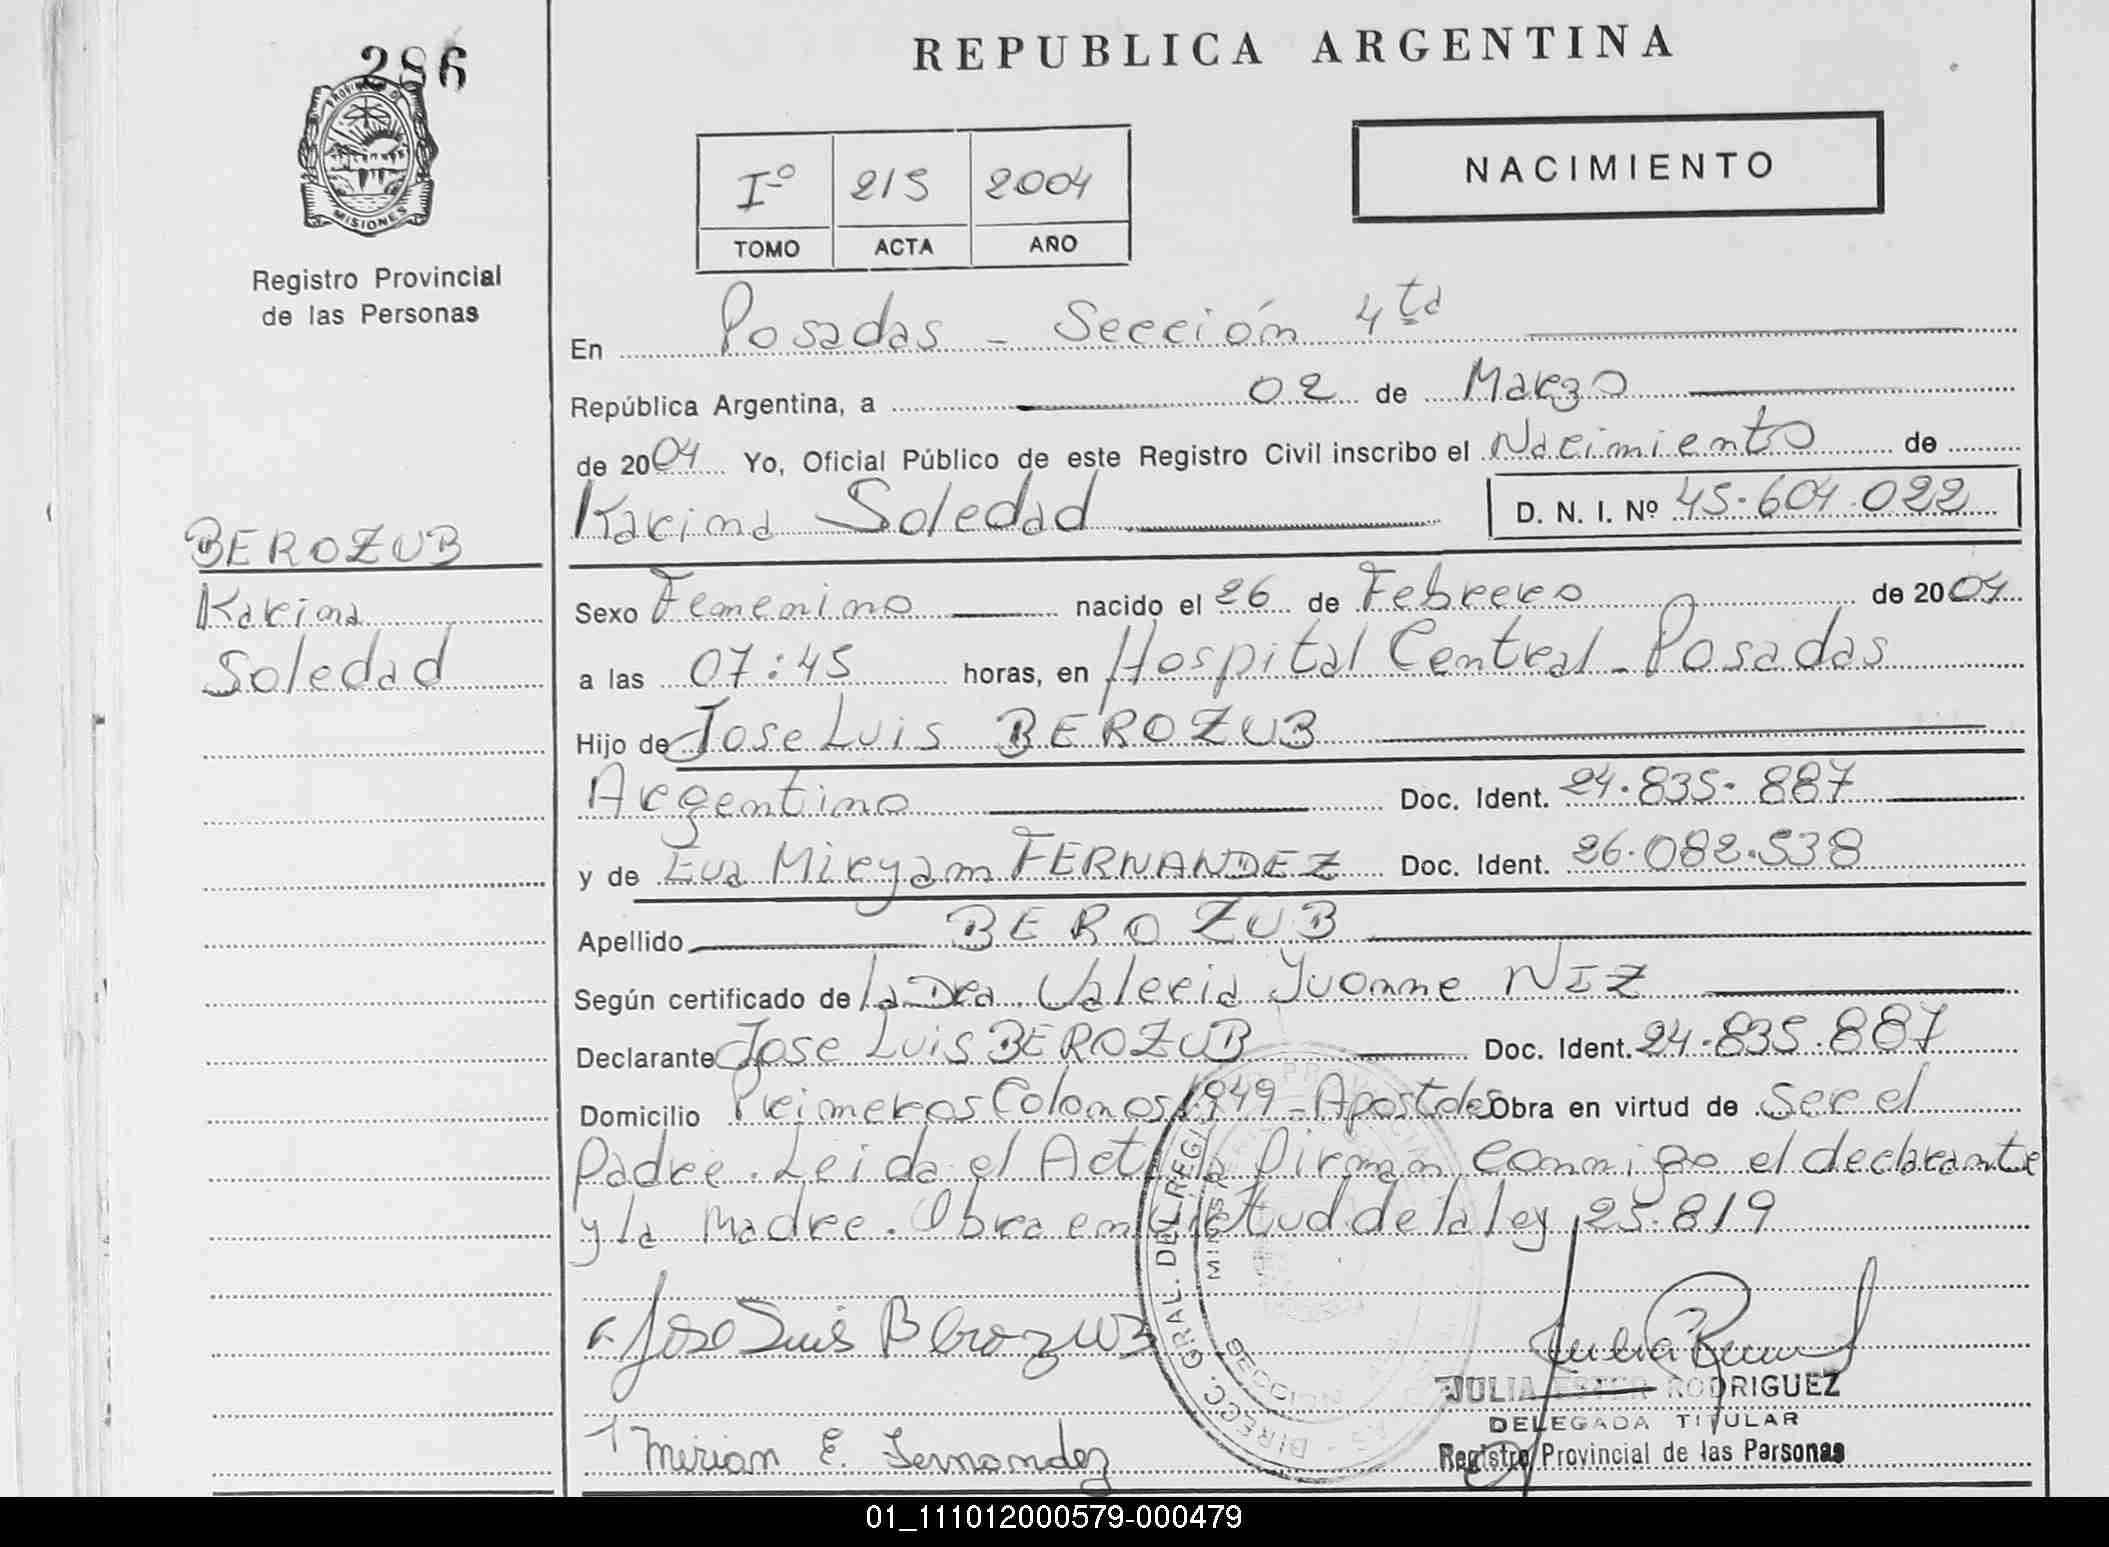 286
REPUBLICA ARGENTINA
PROVINCIA DE
MISIONES
Registro Provincial
de las Personas
Iº 215 2004
TOMO ACTA AÑO
NACIMIENTO
En Posadas - Sección 4ta
República Argentina, a 02 de Marzo
de 2004 Yo, Oficial Público de este Registro Civil inscribo el Nacimiento de
Karina Soledad D. N. I. Nº 45.604.022
BEROZUB
Karina
Soledad
Sexo Femenino nacido el 26 de Febrero de 2004
a las 07:45 horas, en Hospital Central - Posadas
Hijo de Jose Luis BEROZUB
Argentino Doc. Ident. 24.835.887
y de Eva Miryam FERNANDEZ Doc. Ident. 26.082.538
Apellido BEROZUB
Según certificado de la Dra Valeria Yvonne NIZ
Declarante Jose Luis BEROZUB Doc. Ident. 24.835.887
Domicilio Primeros Colonos 1949 - Apostoles Obra en virtud de Ser el
Padre. Leida el Acta la firman conmigo el declarante
y la Madre. Obra en virtud de la ley 25.819
Jose Luis Berozub
DIRECC. GRAL. DEL REGI
JULIA ESTER RODRIGUEZ
DELEGADA TITULAR
Registro Provincial de las Personas
Mirian E. Fernandez
01_111012000579-000479